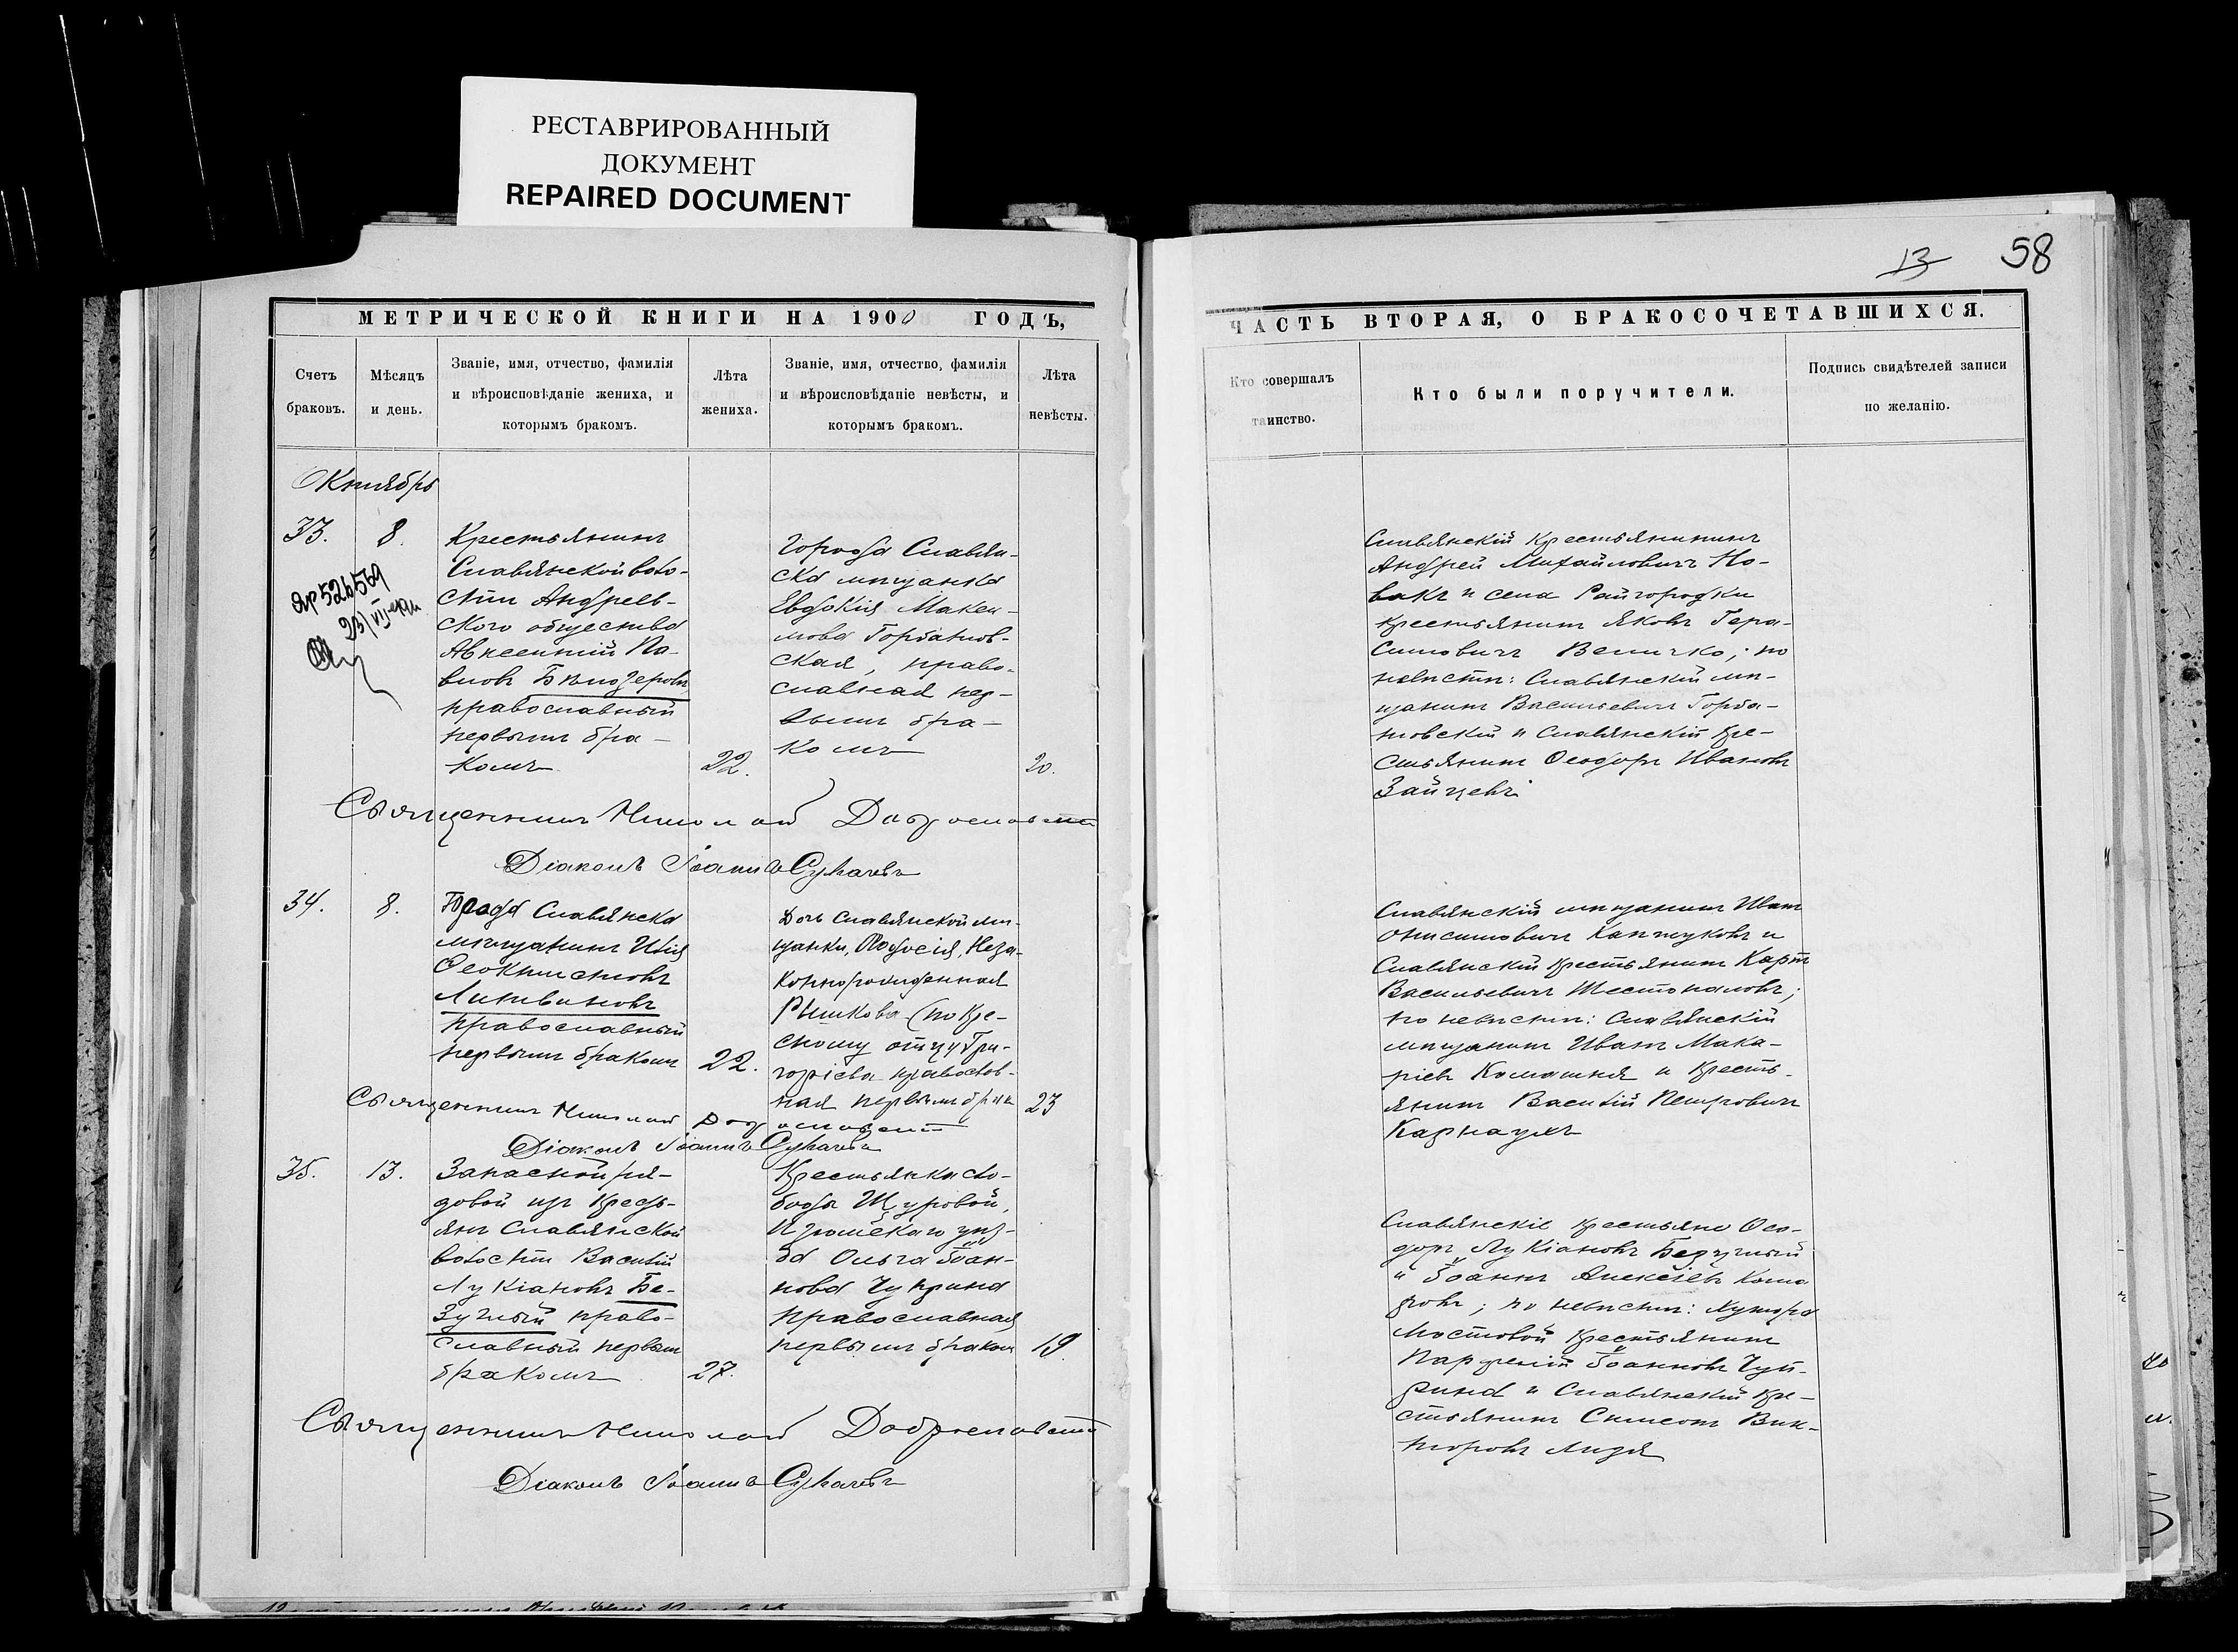 РЕСТАВРИРОВАННЫЙ
ДОКУМЕНТ
REPAIRED DOCUMENT
МЕТРИЧЕСКОЙ КНИГИ НА 1900 ГОДЪ,
Счетъ
браковъ.
Мѣсяцъ
и день.
Званіе, имя, отчество, фамилія
и вѣроисповѣданіе жениха, и
которымъ бракомъ.
Лѣта
жениха.
Званіе, имя, отчество, фамилія
и вѣроисповѣданіе невѣсты, и
которымъ бракомъ.
Лѣта
невѣсты.
Октябрь
33.
8.
Крестьянинъ
Славянской воло-
сти Андреев-
ского общества
Авксентій Па-
вловъ Бѣлозеровъ
православный
первымъ бра-
комъ
22.
Города Славян-
ска мѣщанка
Евдокія Макси-
мова Горбанов-
ская, право-
славная пер-
вымъ бра-
комъ
20.
Священникъ Николай
Діаконъ Іоаннъ
34.
8.
Города Славянска
мѣщанинъ Илія
Ѳеоктистовъ
Литвиновъ
православный
первымъ бракомъ
22.
Дочь Славянской мѣ-
щанки, Ѳеодосія, Неза-
коннорожденная
Рышкова (по кре-
стному отцу Гри-
горіева православ-
ная первымъ брак
23
Священникъ Николай
Діаконъ Іоаннъ
35.
13.
Запасной ря-
довой изъ кресть-
янъ Славянской
волости Василій
Лукіановъ Бе-
зуглый право-
славный первым
бракомъ
27.
Крестьянка сло-
боды Щуровой,
Изюмскаго уѣз-
да Ольга Іоан-
нова Чуприна
православная
первымъ браком
19.
Священникъ Николай
Діаконъ Іоаннъ
13 58
ЧАСТЬ ВТОРАЯ, О БРАКОСОЧЕТАВШИХСЯ.
Кто совершалъ
таинство.
Кто были поручители.
Подпись свидѣтелей записи
по желанію.
Славянскій крестьянинъ
Андрей Михайловичъ Но-
вакъ и села Райгородки
крестьянинъ Яковъ Гера-
симовичъ Величко; по
невѣстѣ: Славянскій мѣ-
щанинъ Васильевичъ Горба-
новскій и Славянскій кре-
стьянинъ Ѳеодоръ Ивановъ
Зайцевъ
Славянскій мѣщанинъ Иван
Онисимовичъ и
Славянскій крестьянинъ Карп
Васильевичъ Шестопаловъ;
по невѣстѣ: Славянскій
мѣщанинъ Иванъ Мака-
ріевъ и кресть-
янинъ Василій Петровичъ
Карнаухъ
Славянскіе крестьяне Ѳео-
доръ Лукіановъ Безуглый
и Іоаннъ Алексіевъ
по невѣстѣ: хутора
Мостовой крестьянинъ
Парфеній Іоанновъ Чуп-
рина и Славянскій кре-
стьянинъ Симеонъ Вик-
торовъ